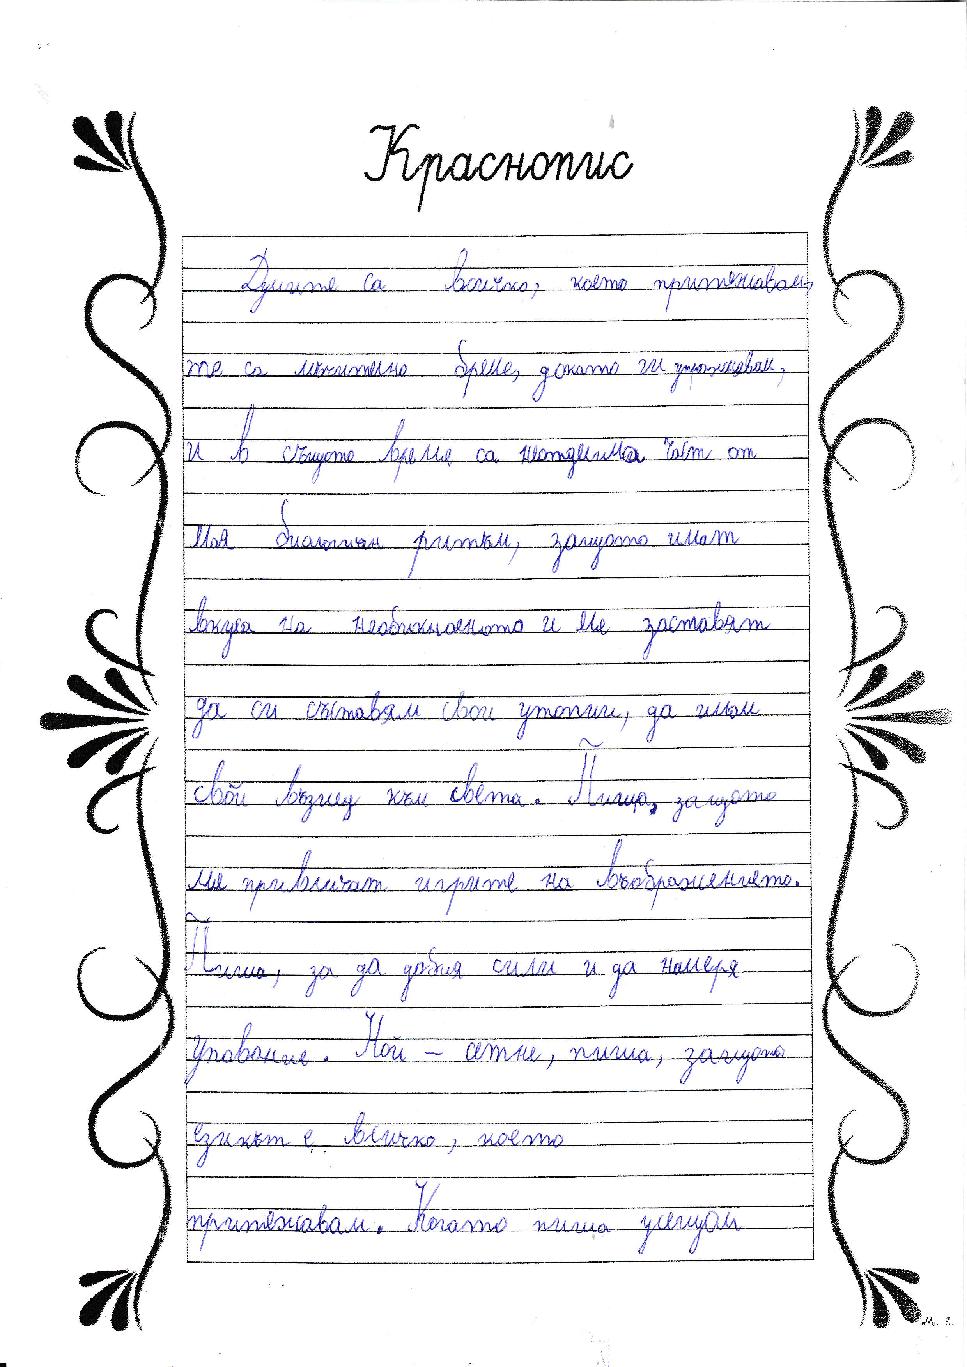 Краснопис
Думите са всичко, което притежавам,
те са мъчително бреме, докато ги укротявам,
и в същото време са неотделима част от
моя биологичен ритъм, защото имат
вкуса на необикновеното и ме заставят
да си съставям свои утопии, да имам
свой възглед към света. Пиша, защото
ме привличат игрите на въображението.
Пиша, за да добия сили и да намеря
упование. Най - сетне, пиша, защото
езикът е всичко, което
притежавам. Когато пиша усещам